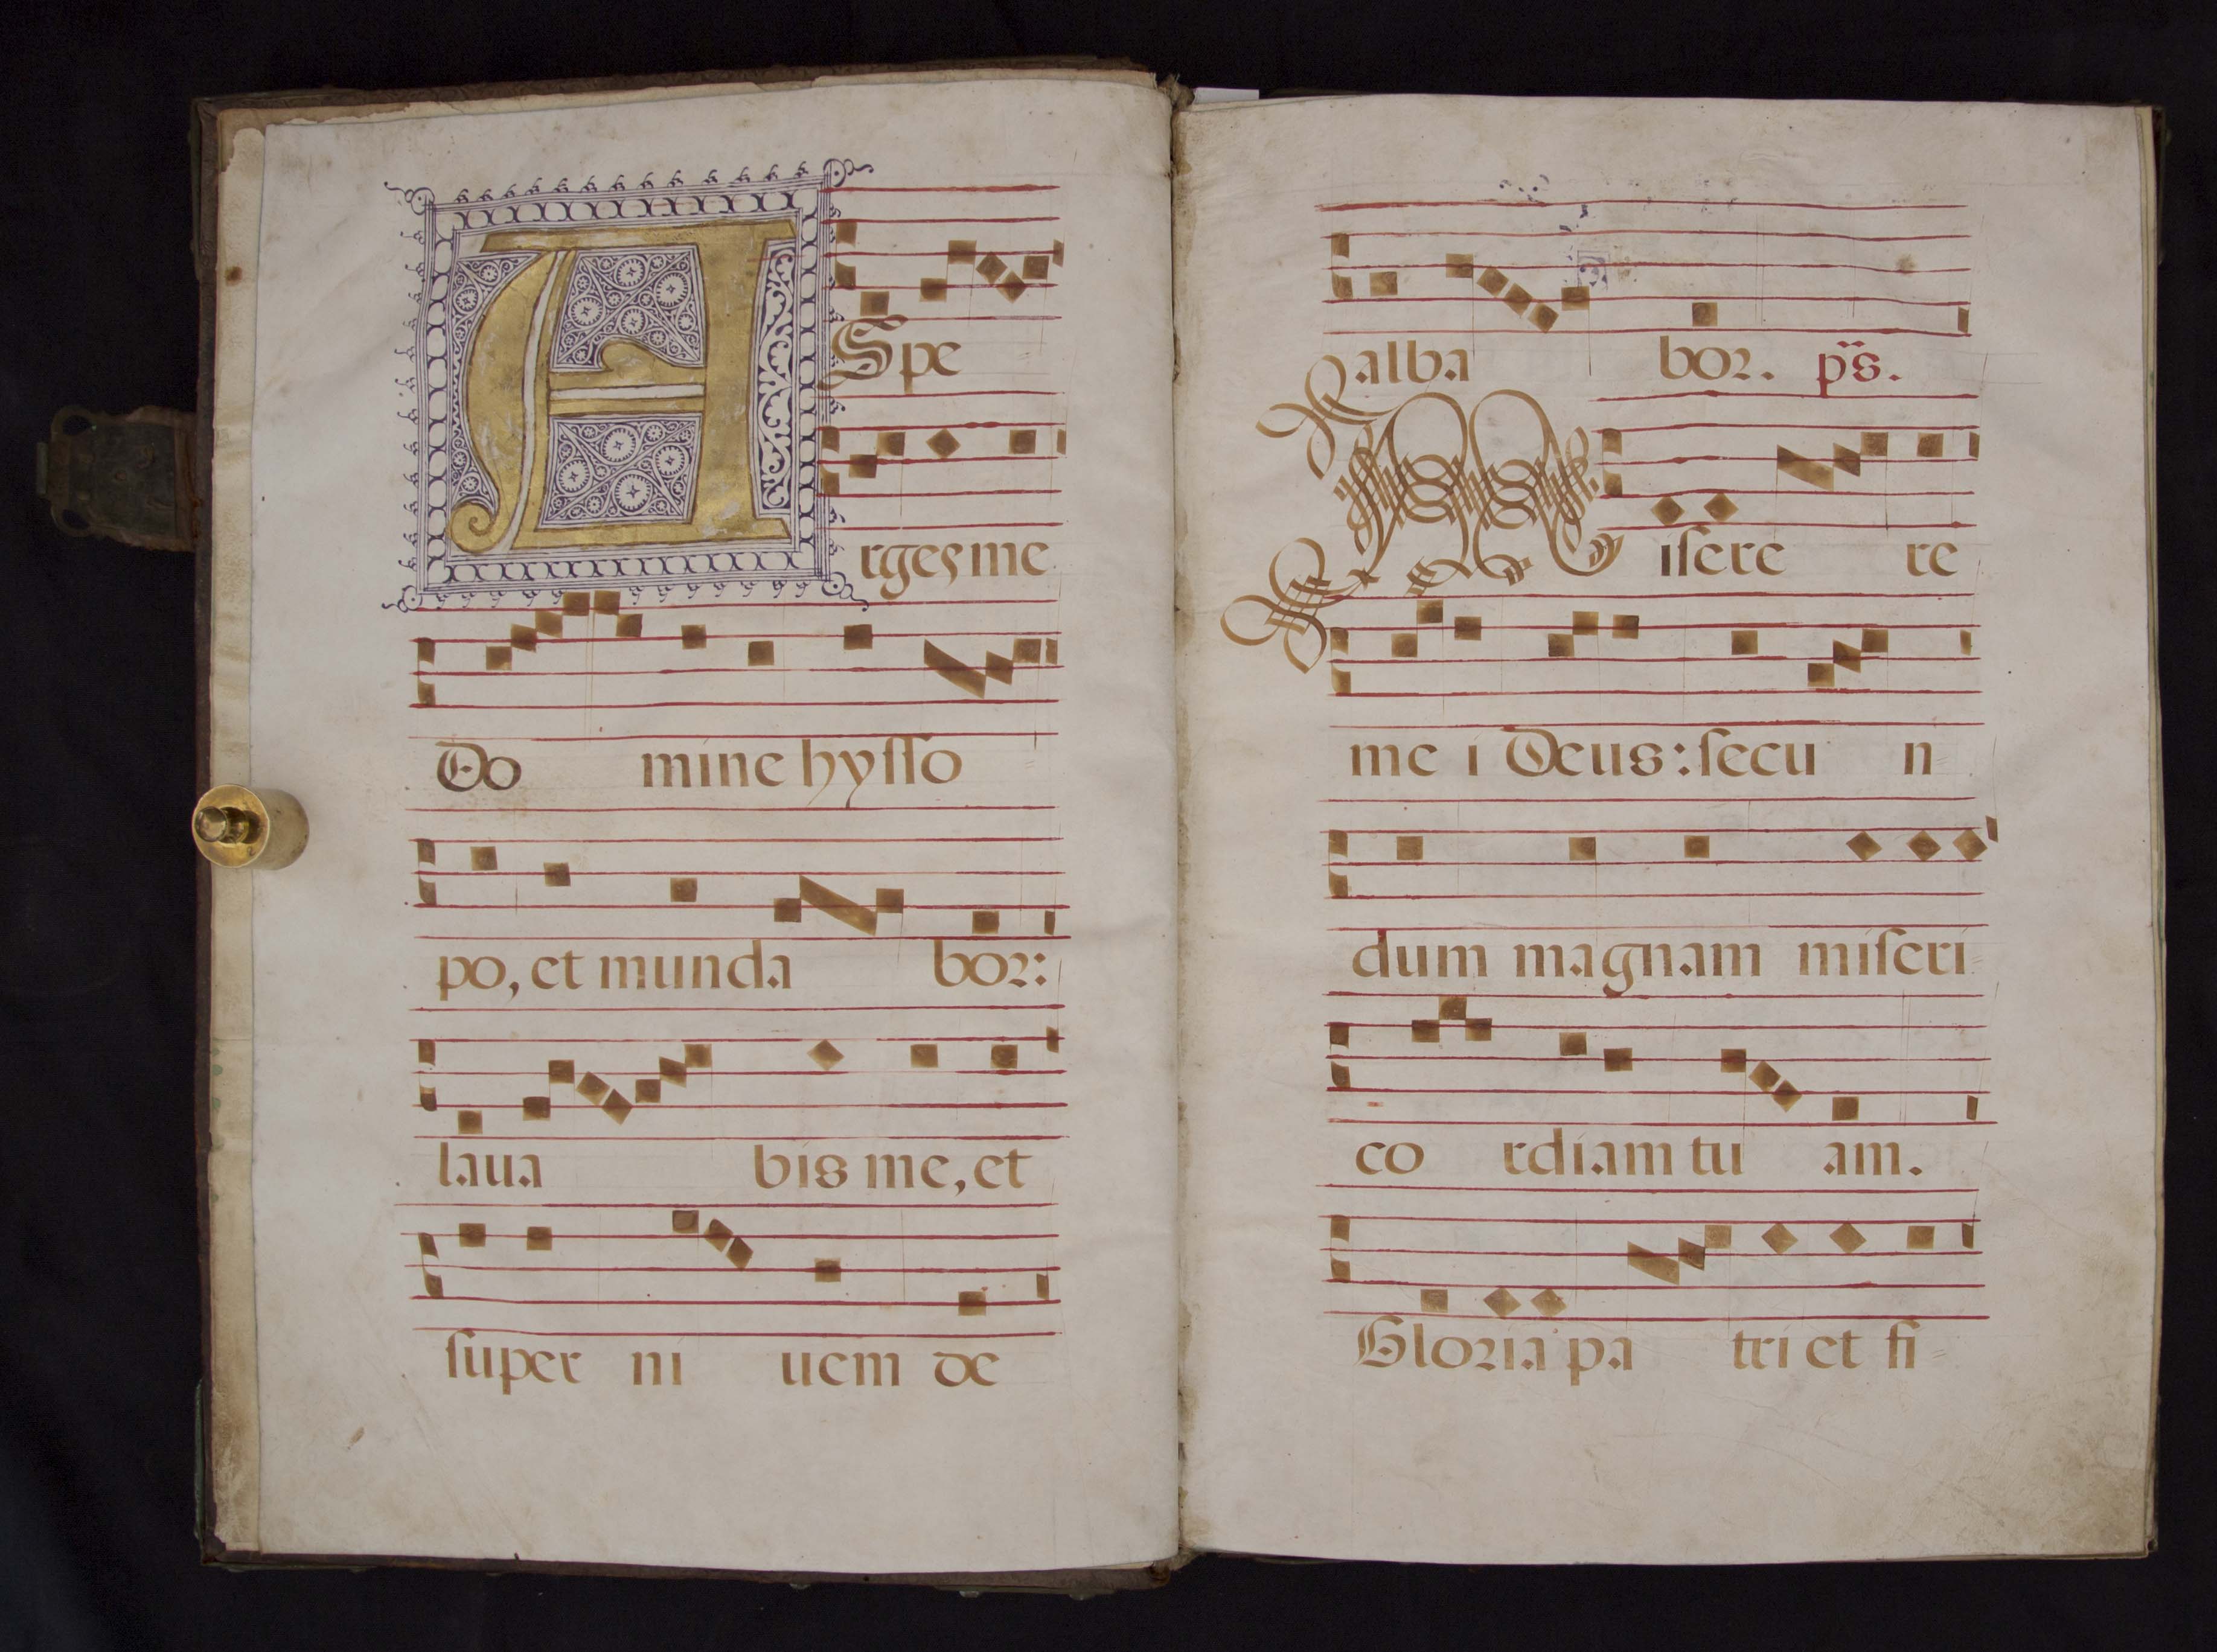 ASpe
rges me
Do mine hyſſo
po, et munda bor:
laua bis me, et
ſuper ni uem de
alba bor. ps.
Miſere re
me i Deus: ſecu n
dum magnam miſeri
co rdiam tu am.
Gloria pa tri et fi